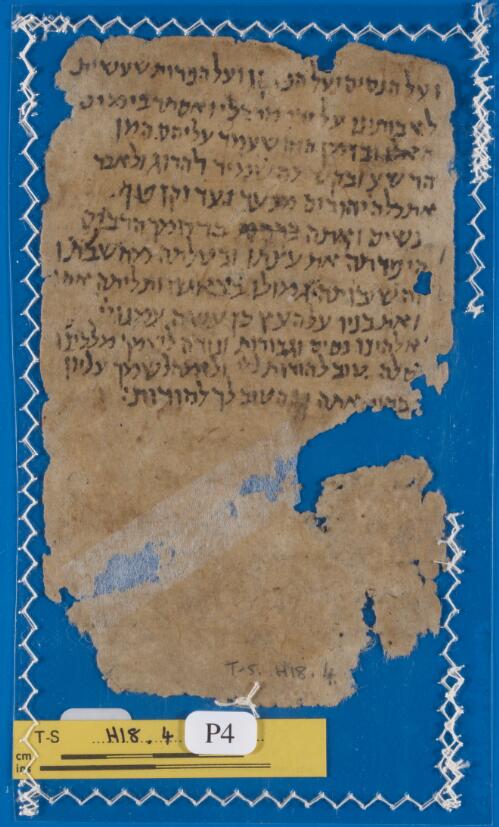 ועל הנסים ועל הגבורות שעשית
לאבותינו על ידי מרדכי ואסתר בימים
האלו ובזמן הזה שעמד עליהם המן
הרשע ובקש להרוג ולאבד
את כל היהודים מנער ועד זקן טף
נשים ואתה ברחמיך הרבים
את עצתו ובטלתה מחשבתו
והשיבותה גמולו בראשו ותליתה אתו
ואת בניו על העץ כן עשה עמנו
אלהינו נסים וגבורות ונודה לשמך מלכינו
סלה טוב להודות ליי ולזמר לשמך עליון
ברוך אתה יי הטוב לך להודות:
T-S. H18.4
T-S H18.4
P4
cm
ins